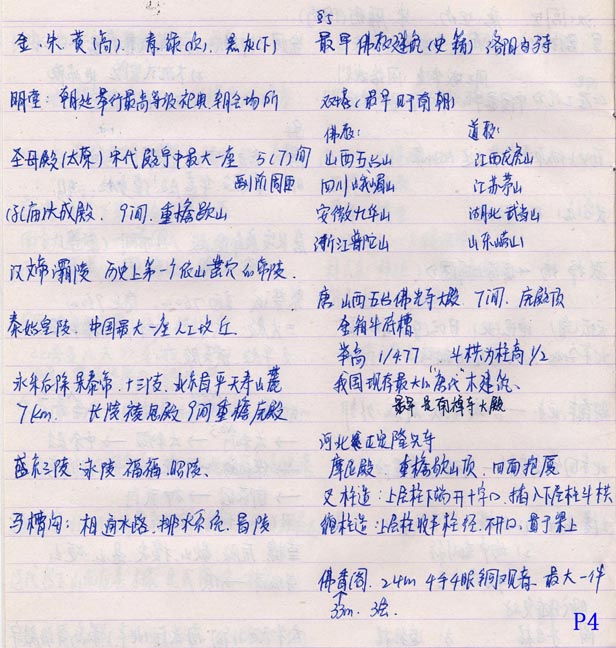 金、朱、黄(高)、青绿(次)、黑灰(下)
明堂：朝廷举行最高等级祀典朝会场所
圣母殿(太原)宋代殿宇中最大一座 5(7)间
副阶周匝
孔庙大成殿、9间、重檐歇山
汉文帝灞陵 历史上第一个依山凿穴的帝陵、
秦始皇陵、中国最大一座人工坟丘
永乐后除景泰帝、十三陵、北京昌平天寿山麓
7km、 长陵祾恩殿 9间重檐庑殿
盛京三陵：永陵 福 昭陵、
马槽沟：相通水路、排水系统、昌陵
85
最早佛教建筑(史籍) 洛阳白马寺
双塔(最早见于南朝)
佛教：
山西五台山
四川峨嵋山
安徽九华山
浙江普陀山
道教：
江西龙虎山
江苏茅山
湖北武当山
山东崂山
唐 山西五台佛光寺大殿 7间、庑殿顶
金箱斗底槽
举高 1/4.77 斗栱为柱高1/2
我国现存最大的"唐代"木建筑、
最早是南禅寺大殿
河北正定隆兴寺
摩尼殿、重檐歇山顶、四面抱厦
叉柱造：上层柱下端开十字口、插入下层柱斗栱
缠柱造：上层柱收半柱径、不开口、置于梁上
佛香阁、24m 4手4眼铜观音、最大一件
33m、3层、
P4